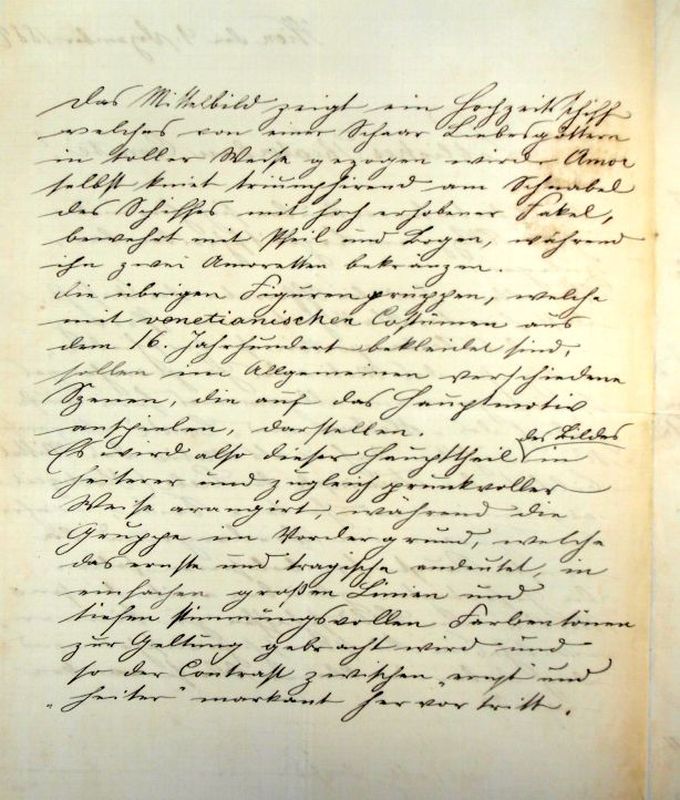 Das Mittelbild zeigt ein Hochzeitsschiff
welches von einer Schaar Liebesgöttern
in toller Weise gezogen wird. Amor
selbst kniet triumphirend am Schnabel
des Schiffes mit hoch erhobener Fakel,
bewehrt mit Pfeil und Bogen, während
ihn zwei Amoretten bekränzen.
die übrigen Figurengruppen, welche
mit venetianischen Costümen aus
dem 16. Jahrhundert bekleidet sind,
sollen im Allgemeinen verschiedene
Szenen, die auf das Hauptmotiv
anspielen, darstellen.
Es wird also dieser Haupttheil des Bildes in
heiterer und zugleich prunkvoller
Weise arangirt, während die
Gruppe im Vordergrund, welche
das ernste und tragische andeutet, in
einfachen großen Linien und
tiefen stimmungsvollen Farbentönen
zur Geltung gebracht wird und
so der Contrast zwischen „ernst" und
„heiter" markant hervortritt.